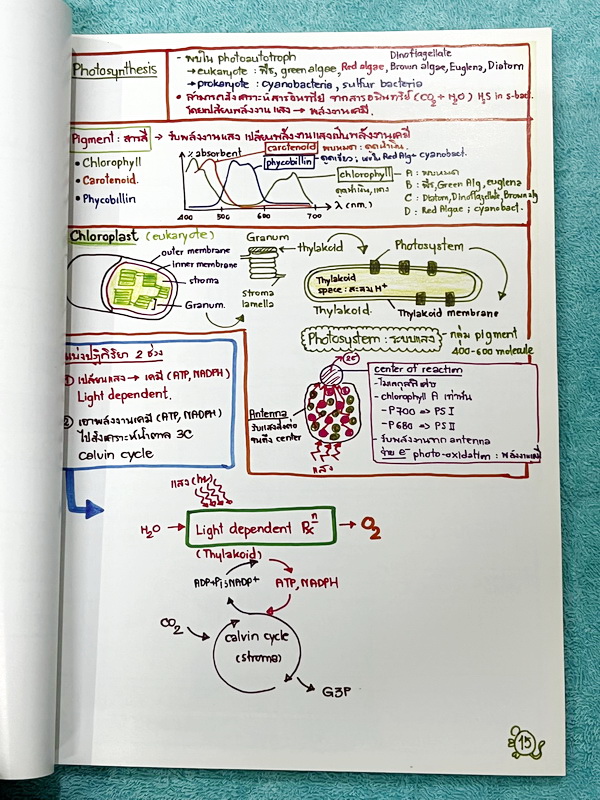 Photosynthesis
- พบใน photoautotroph
Dinoflagellate
→ eukaryote : พืช, green algae, Red algae, Brown algae, Euglena, Diatom
→ prokaryote : cyanobacteria, sulfur bacteria
• สามารถสังเคราะห์สารอินทรีย์ จากสารอนินทรีย์ (CO2 + H2O) H2S in s-bac.
โดยเปลี่ยนพลังงานแสง → พลังงานเคมี.
Pigment : สารสี → รับพลังงานแสง เปลี่ยนพลังงานแสงเป็นพลังงานเคมี
• Chlorophyll
• Carotenoid.
• Phycobillin
% absorbent
carotenoid พบหมด : ดูดน้ำเงิน.
phycobillin ดูดเขียว ; พบใน Red Alg + cyanobact.
chlorophyll
ดูดน้ำเงิน, แดง
A : พบหมด
B : พืช, Green Alg, euglena
C : Diatom, Dinoflagellate, Brown alg
D : Red Algae ; cyanobact.
400 500 600 700 λ (nm.)
Chloroplast (eukaryote)
outer membrane
inner membrane
stroma
Granum.
Granum
thylakoid
stroma lamella
Photosystem
Thylakoid space : สะสม H+
Thylakoid.
Thylakoid membrane
Photosystem : ระบบแสง
- กลุ่ม pigment
400-600 molecule
แบ่งปฏิกิริยา 2 ช่วง
① เปลี่ยนแสง → เคมี (ATP, NADPH)
Light dependent.
② เอาพลังงานเคมี (ATP, NADPH)
ไปสังเคราะห์น้ำตาล 3C
calvin cycle
2e-
Antenna
รับแสงส่งต่อ
จนถึง center
แสง
center of reaction
- โมเลกุลพิเศษ
- chlorophyll A เท่านั้น
- P700 => PS I
- P680 => PS II
- รับพลังงานจาก antenna
จ่าย e- photo-oxidation : พลังงานแสง
แสง (hv)
H2O → Light dependent Rxn → O2
(Thylakoid)
ADP+Pi ; NADP+
ATP, NADPH
CO2
calvin cycle
(stroma)
G3P
15